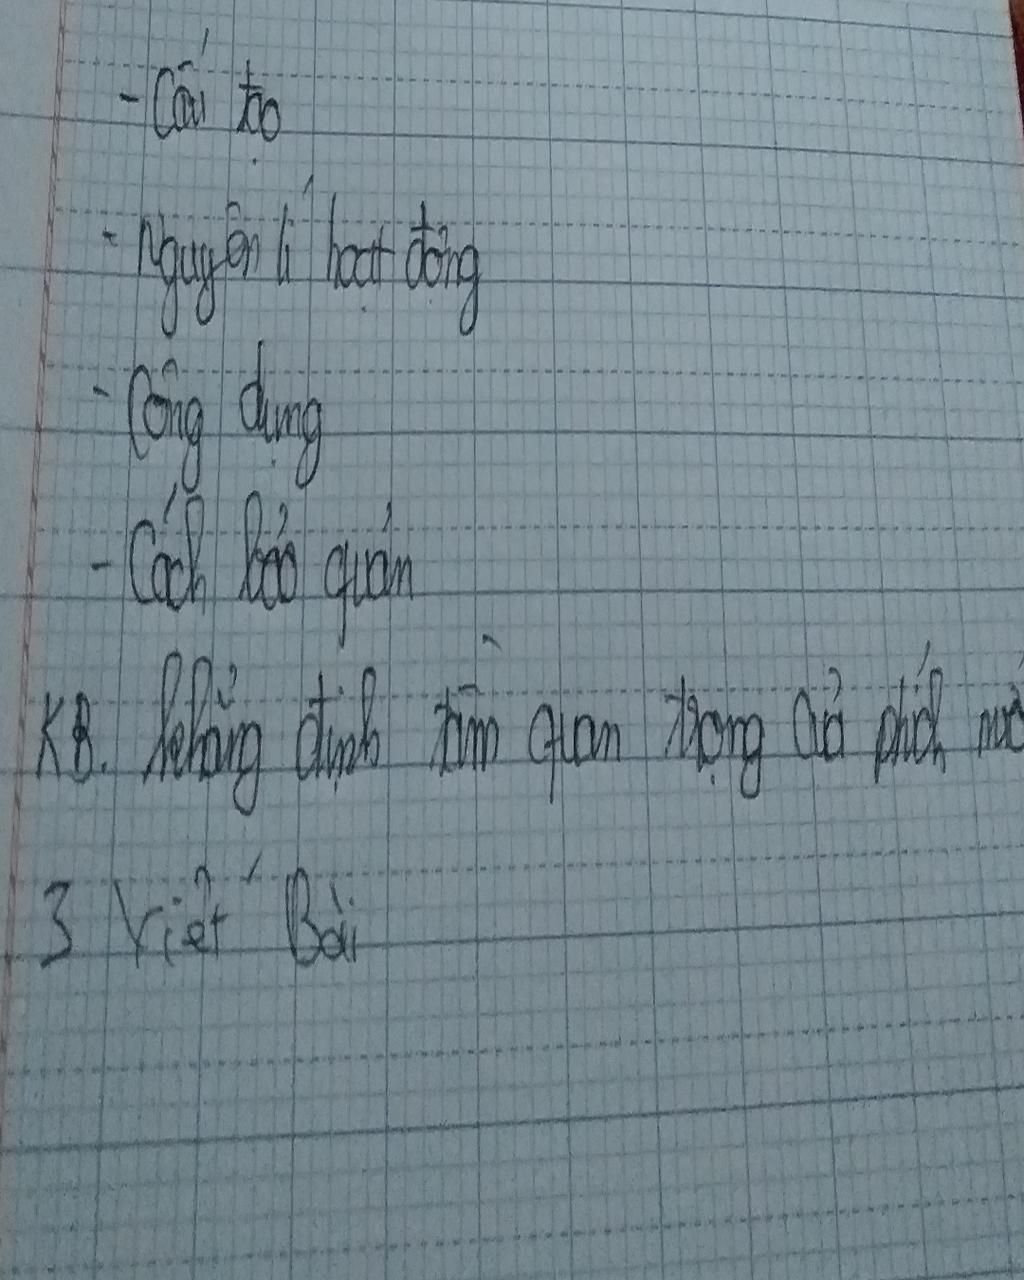 - Cấu tạo
- Nguyên lí hoạt động
- Công dụng
- Cách bảo quản
KB. Khẳng định tầm quan trọng của phích nước
3 Viết Bài